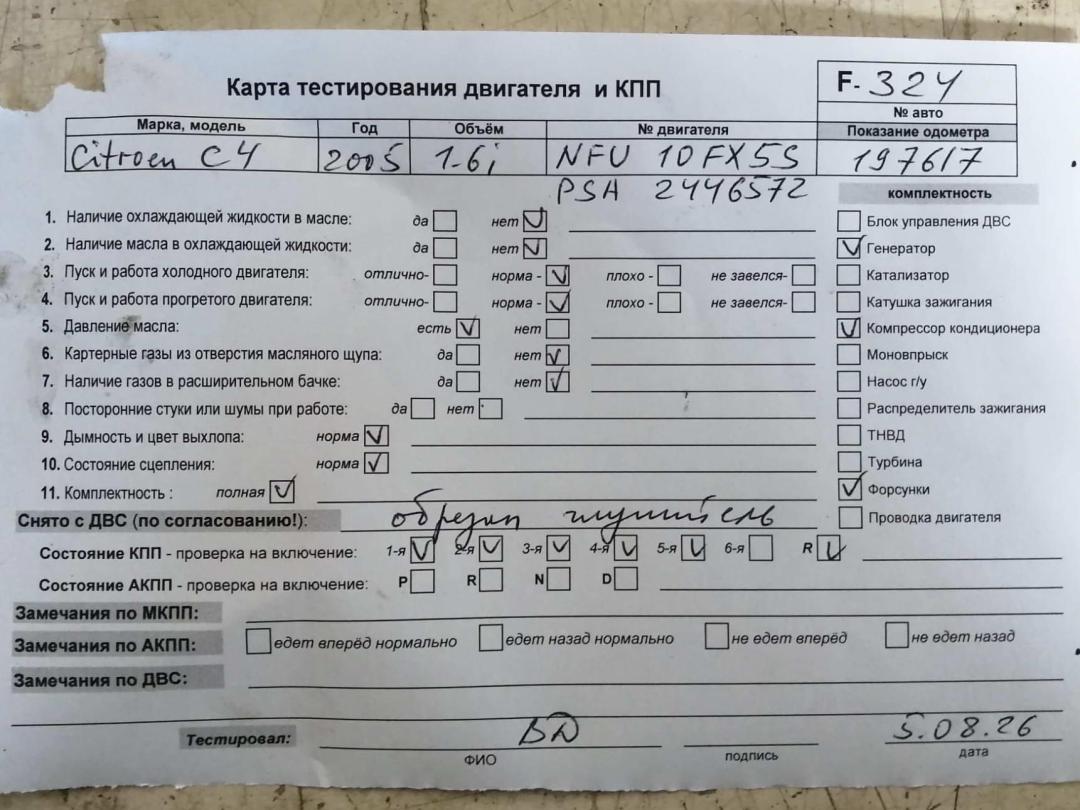 Карта тестирования двигателя и КПП
F- 324
№ авто
Марка, модель Год Объём № двигателя Показание одометра
Citroen C4 2005 1.6i NFU 10FX5S 197617
PSA 2446572
комплектность
1. Наличие охлаждающей жидкости в масле: да нет
Блок управления ДВС
2. Наличие масла в охлаждающей жидкости: да нет
Генератор
3. Пуск и работа холодного двигателя: отлично- норма - плохо - не завелся-
Катализатор
4. Пуск и работа прогретого двигателя: отлично- норма - плохо - не завелся-
Катушка зажигания
5. Давление масла: есть нет
Компрессор кондиционера
6. Картерные газы из отверстия масляного щупа: да нет
Моновпрыск
7. Наличие газов в расширительном бачке: да нет
Насос г/у
8. Посторонние стуки или шумы при работе: да нет
Распределитель зажигания
9. Дымность и цвет выхлопа: норма
ТНВД
10. Состояние сцепления: норма
Турбина
11. Комплектность : полная
Форсунки
Снято с ДВС (по согласованию!): обрезан глушитель
Проводка двигателя
Состояние КПП - проверка на включение: 1-я 2-я 3-я 4-я 5-я 6-я R
Состояние АКПП - проверка на включение: P R N D
Замечания по МКПП:
Замечания по АКПП: едет вперёд нормально едет назад нормально не едет вперёд не едет назад
Замечания по ДВС:
Тестировал: ВД 5.08.26
ФИО подпись дата